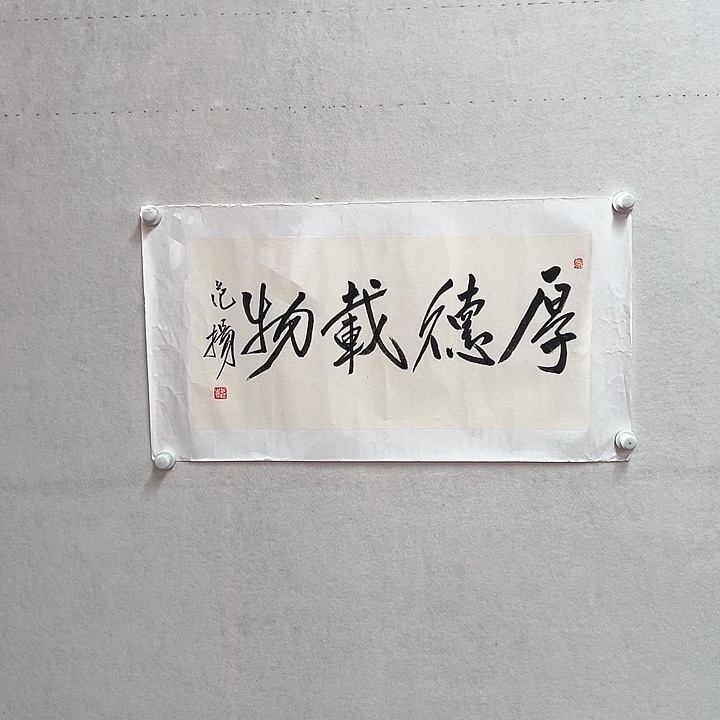 厚德載物
范揚